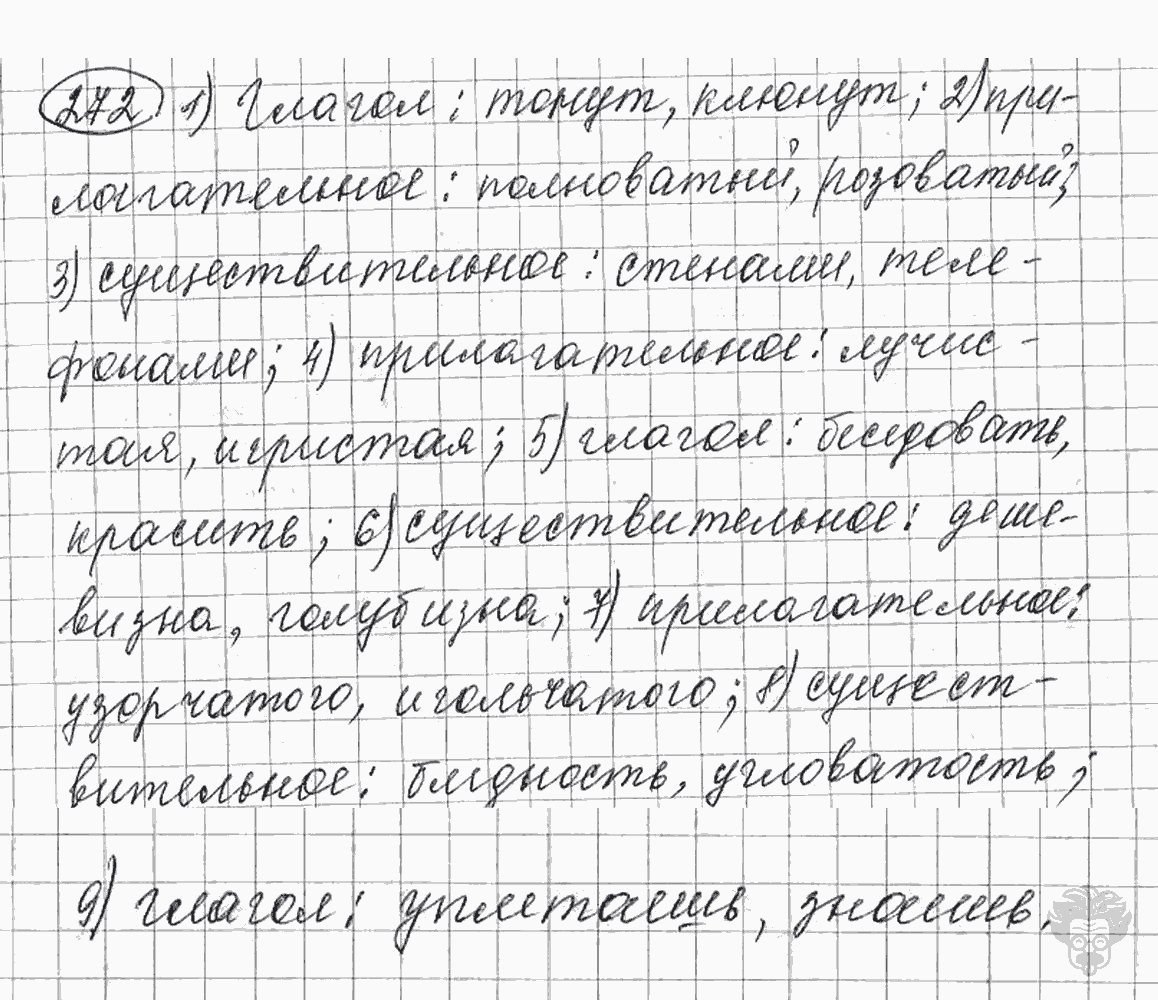 272 1) Глагол: тонут, клюнут; 2) при-
лагательное: полноватый, розоватый;
3) существительное: стенами, теле-
фонами; 4) прилагательное: лучис-
тая, игристая; 5) глагол: беседовать,
красить; 6) существительное: деше-
визна, голубизна; 7) прилагательное:
узорчатого, игольчатого; 8) сущест-
вительное: бледность, угловатость;
9) глагол: уплетаешь, знаешь.